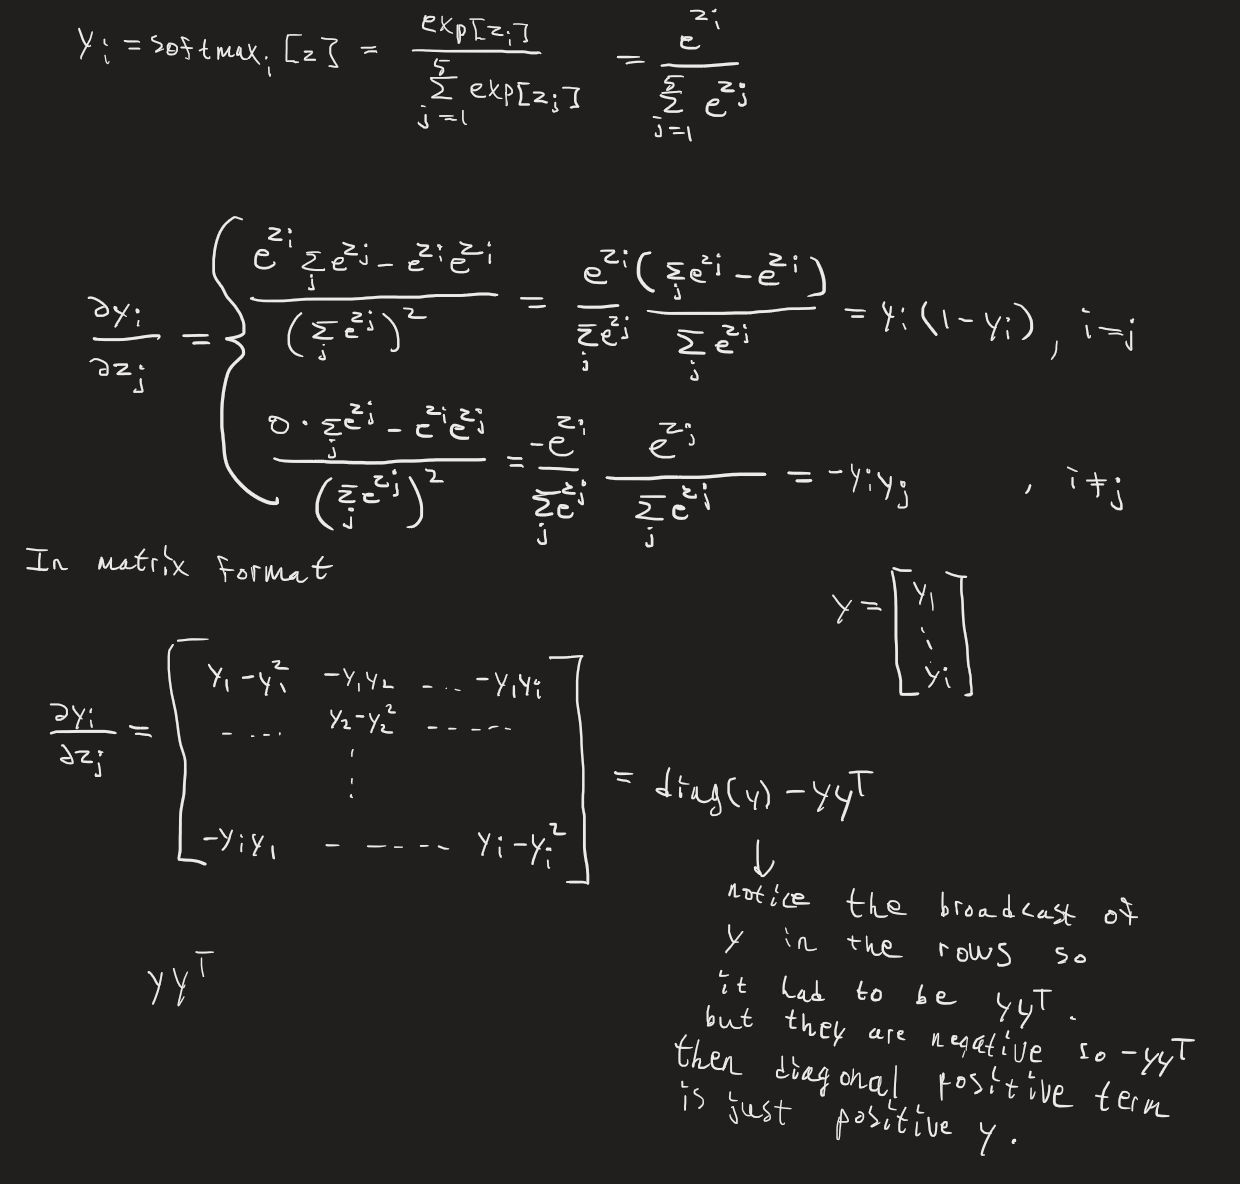 y_i = softmax_i [z] = exp[z_i] / ∑_{j=1}^{5} exp[z_j] = e^{z_i} / ∑_{j=1}^{5} e^{z_j}
∂y_i / ∂z_j = { (e^{z_i} ∑_j e^{z_j} - e^{z_i} e^{z_i}) / (∑_j e^{z_j})^2 = e^{z_i} / ∑_j e^{z_j} (∑_j e^{z_j} - e^{z_i}) / ∑_j e^{z_j} = y_i (1 - y_i) , i = j
(0 · ∑_j e^{z_j} - e^{z_i} e^{z_j}) / (∑_j e^{z_j})^2 = -e^{z_i} / ∑_j e^{z_j} e^{z_j} / ∑_j e^{z_j} = -y_i y_j , i ≠ j
In matrix format
y = [ y_1 ⋮ y_i ]
∂y_i / ∂z_j = [ y_1 - y_1^2 -y_1 y_2 ... -y_1 y_i
.... y_2 - y_2^2 ......
⋮
-y_i y_1 ..... y_i - y_i^2 ] = diag(y) - yy^T
↓
notice the broadcast of
y in the rows so
it had to be yy^T.
but they are negative so -yy^T
then diagonal positive term
is just positive y.
yy^T